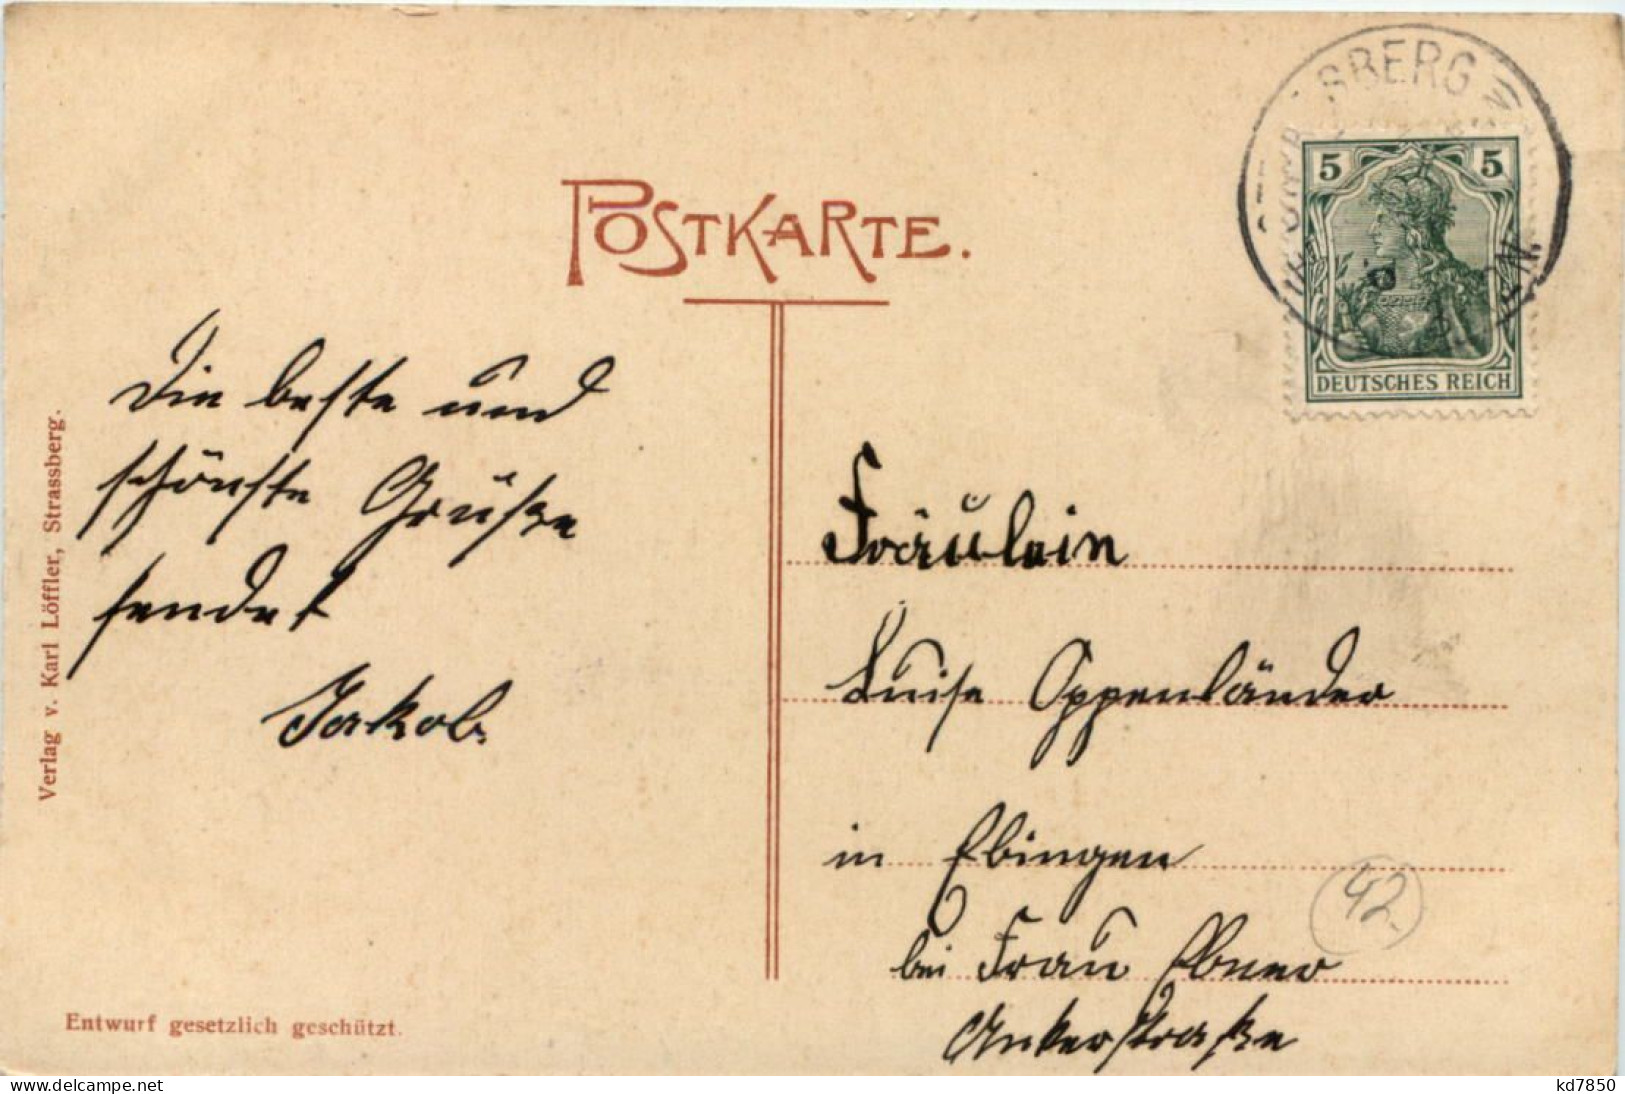 POSTKARTE.
SBERG
5 5
DEUTSCHES REICH
Die beste und
schönste Grüße
sendet
Jakob.
Fräulein
Luise Oppenländer
in Ebingen
bei Frau Ebner
Ankerstraße
42
Verlag v. Karl Löffler, Strassberg.
Entwurf gesetzlich geschützt.
www.delcampe.net
kd7850